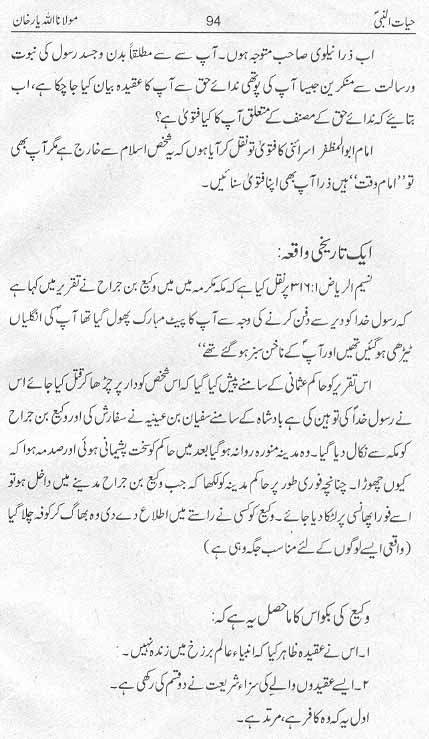 حیات النبیؐ 94 مولانا اللہ یار خان
اب ذرا نیلوی صاحب متوجہ ہوں۔ آپ سے سے مطلقاً بدن وجسد رسول کی نبوت
ورسالت سے منکرین جیسا آپ کی پوتھی ندائے حق سے آپ کا عقیدہ بیان کیا جا چکا ہے، اب
بتائیے کہ ندائے حق کے مصنف کے متعلق آپ کا کیا فتویٰ ہے؟
امام ابوالمظفر اسرائنی کا فتویٰ تو نقل کر آیا ہوں کہ یہ شخص اسلام سے خارج ہے مگر آپ بھی
تو ’’امام وقت‘‘ ہیں ذرا آپ بھی اپنا فتویٰ سنائیں۔
ایک تاریخی واقعہ:
نسیم الریاض ۳۱۶:۱ پر نقل کیا ہے کہ مکہ مکرمہ میں میں وکیع بن جراح نے تقریر میں کہا ہے
کہ رسول خدا کو دیر سے دفن کرنے کی وجہ سے آپ کا پیٹ مبارک پھول گیا تھا آپؐ کی انگلیاں
ٹیڑھی ہو گئیں تھیں اور آپؐ کے ناخن سبز ہو گئے تھے‘‘
اس تقریر کو حاکم عثمانی کے سامنے پیش کیا گیا کہ اس شخص کو دار پر چڑھا کر قتل کیا جائے اس
نے رسول خداؐ کی توہین کی ہے بادشاہ کے سامنے سفیان بن عینیہ نے سفارش کی اور وکیع بن جراح
کو مکہ سے نکال دیا گیا۔ وہ مدینہ منورہ روانہ ہو گیا بعد میں حاکم کو سخت پشیمانی ہوئی اور صدمہ ہوا کہ
کیوں چھوڑا۔ چنانچہ فوری طور پر حاکم مدینہ کو لکھا کہ جب وکیع بن جراح مدینے میں داخل ہو تو
اسے فوراً پھانسی پر لٹکا دیا جائے۔ وکیع کو کسی نے راستے میں اطلاع دے دی وہ بھاگ کر کوفہ چلا گیا
(واقعی ایسے لوگوں کے لئے مناسب جگہ وہی ہے)
وکیع کی بکواس کا ماحصل یہ ہے کہ:
۱۔ اس نے عقیدہ ظاہر کیا کہ انبیاء عالم برزخ میں زندہ نہیں۔
۲۔ ایسے عقیدوں والے کی سزاء شریعت نے دو قسم کی رکھی ہے۔
اول یہ کہ وہ کافر ہے، مرتد ہے۔